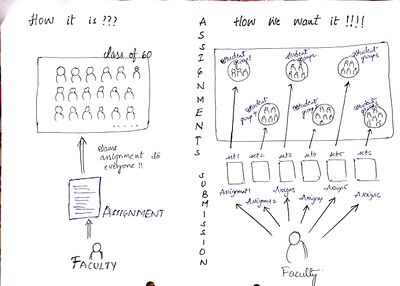 How it is ???
class of 60
Same
assignment to
everyone !!
ASSIGNMENT
FACULTY
ASSIGNMENTS SUBMISSION
How we want it !!!!
student
groups
student
groups
student
groups
student
group
student
groups
student
groups
set1
set2
set3
set4
set5
set6
Assignment1
Assignmt2
Assign3
Assign4
Assign5
Assign6
Faculty